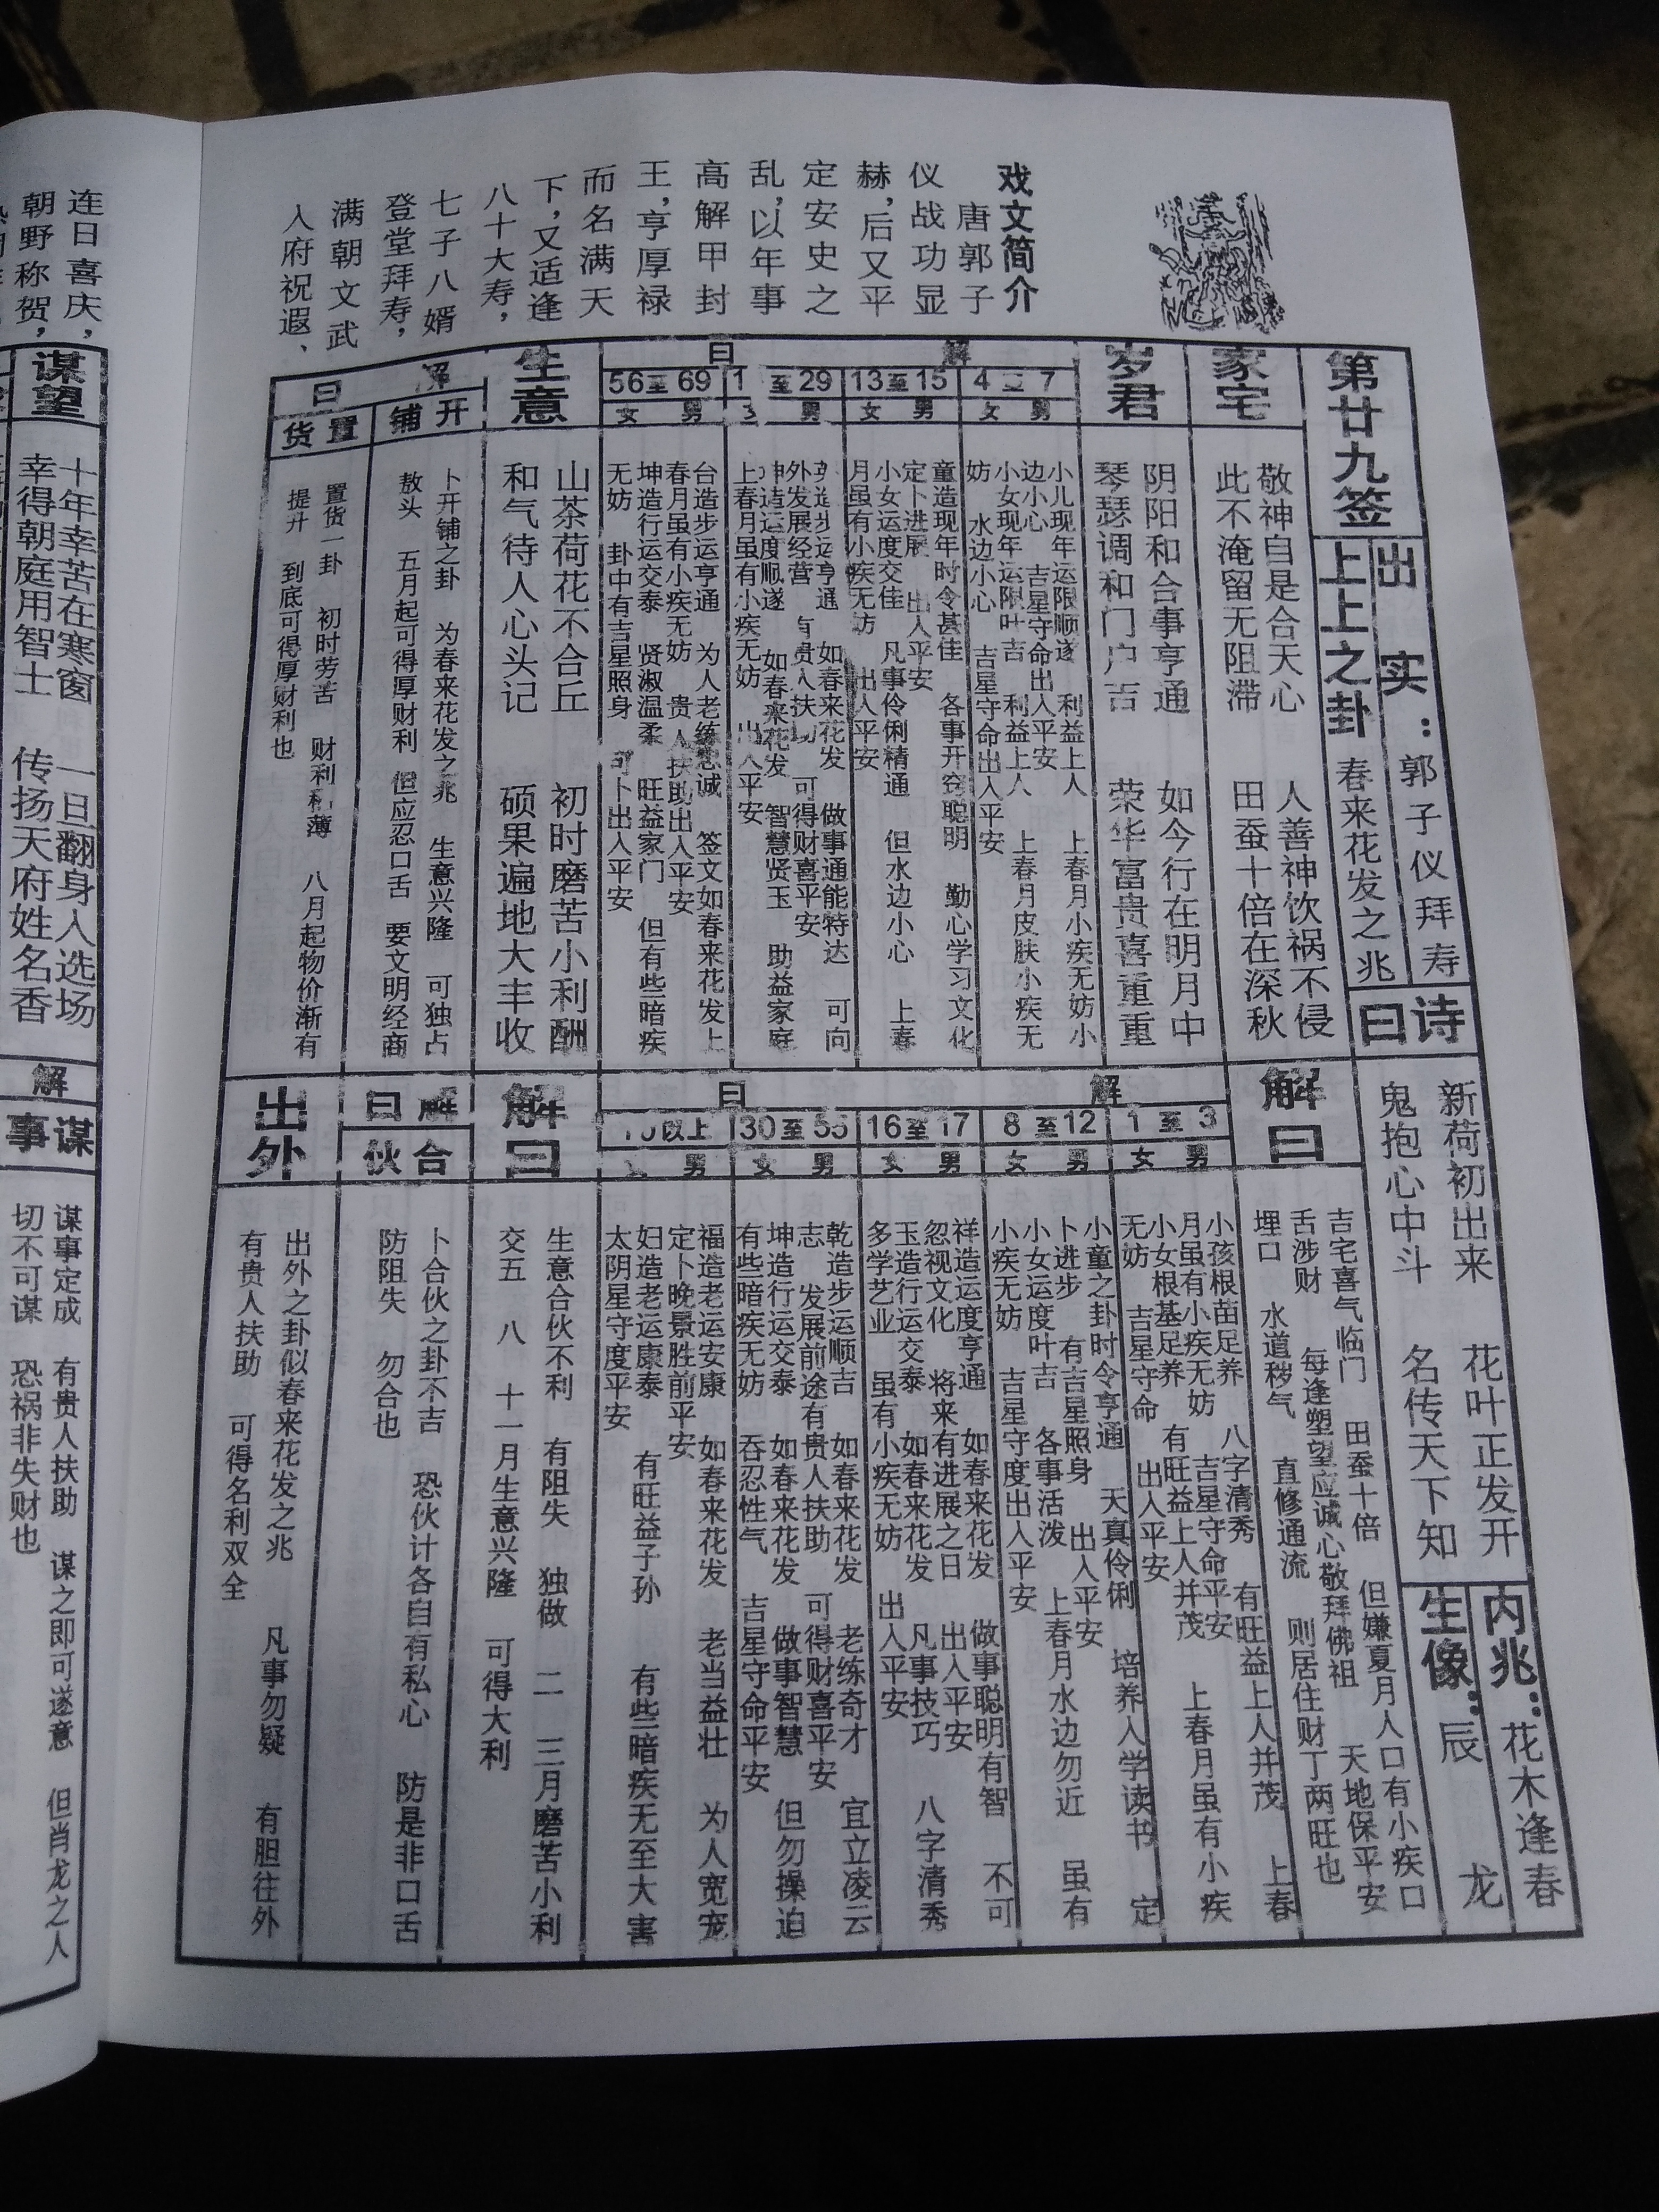 戏文简介
唐郭子
仪战功显
赫,后又平
定安史之
乱,以年事
高解甲封
王,享厚禄
而名满天
下,又适逢
八十大寿,
七子八婿
登堂拜寿,
满朝文武
入府祝遐、
连日喜庆,
朝野称贺,
第廿九签
出实:郭子仪拜寿
上上之卦 春来花发之兆
诗曰
新荷初出来 花叶正发开
鬼抱心中斗 名传天下知
内兆:花木逢春
生像:辰龙
家宅
敬神自是合天心 人善神饮祸不侵
此不淹留无阻滞 田蚕十倍在深秋
解曰
吉宅喜气临门 田蚕十倍 但嫌夏月人口有小疾口
舌涉财 每逢塑望应诚心敬拜佛祖 天地保平安
埋口 水道秽气 直修通流 则居住财丁两旺也
岁君
阴阳和合事亨通 如今行在明月中
琴瑟调和门户吉 荣华富贵喜重重
解曰
1至3
男
女
小孩根苗足养 八字清秀 有旺益上人并茂 上春
月虽有小疾无妨 吉星守命平安
小女根基足养 有旺益上人并茂 上春月虽有小疾
无妨 吉星守命 出入平安
4 7
男
女
小儿现年运限顺遂 利益上人 上春月小疾无妨小
边小心 吉星守命出入平安
小女现年运限叶吉 利益上人 上春月皮肤小疾无
妨 水边小心 吉星守命出入平安
8至12
男
女
小童之卦时令亨通 天真伶俐 培养入学读书 定
卜进步 有吉星照身 出入平安
小女运度叶吉 各事活泼 上春月水边勿近 虽有
小疾无妨 吉星守度出入平安
13至15
男
女
童造现年时令甚佳 各事开窍聪明 勤心学习文化
定卜进展 出入平安
小女运度交佳 凡事伶俐精通 但水边小心 上春
月虽有小疾无妨 出入平安
16至17
男
女
祥造运度亨通 如春来花发 做事聪明有智 不可
忽视文化 将来有进展之日 出入平安
玉造行运交泰 如春来花发 凡事技巧 八字清秀
多学艺业 虽有小疾无妨 出入平安
1 至29
男
造步运亨通 如春来花发 做事通能特达 可向
外发展经营 有贵人扶 可得财喜平安
坤造运度顺遂 如春来花发 智慧贤玉 助益家庭
上春月虽有小疾无妨 出入平安
30至55
男
女
乾造步运顺吉 如春来花发 老练奇才 宜立凌云
志 发展前途有贵人扶助 可得财喜平安
坤造行运交泰 如春来花发 做事智慧 但勿操迫
有些暗疾无妨 吞忍性气 吉星守命平安
56至69
男
女
台造步运亨通 为人老练忠诚 签文如春来花发上
春月虽有小疾无妨 贵人扶助出入平安
坤造行运交泰 贤淑温柔 旺益家门 但有些暗疾
无妨 卦中有吉星照身 可卜出入平安
以上
男
福造老运安康 如春来花发 老当益壮 为人宽宠
定卜晚景胜前平安
妇造老运康泰 有旺益子孙 有些暗疾无至大害
太阴星守度平安
生意
山茶荷花不合丘 初时磨苦小利酬
和气待人心头记 硕果遍地大丰收
解曰
生意合伙不利 有阻失 独做 二 三月磨苦小利
交五 八 十一月生意兴隆 可得大利
解曰
开铺
卜开铺之卦 为春来花发之兆 生意兴隆 可独占
敖头 五月起可得厚财利 但应忍口舌 要文明经商
置货
置货一卦 初时劳苦 财利 薄 八月起物价渐有
提升 到底可得厚财利也
解曰
合伙
卜合伙之卦不吉 恐伙计各自有私心 防是非口舌
防阻失 勿合也
出外
出外之卦似春来花发之兆 凡事勿疑 有胆往外
有贵人扶助 可得名利双全
谋望
十年幸苦在寒窗 一旦翻身入选场
幸得朝庭用智士 传扬天府姓名香
解
谋事
谋事定成 有贵人扶助 谋之即可遂意 但肖龙之人
切不可谋 恐祸非失财也